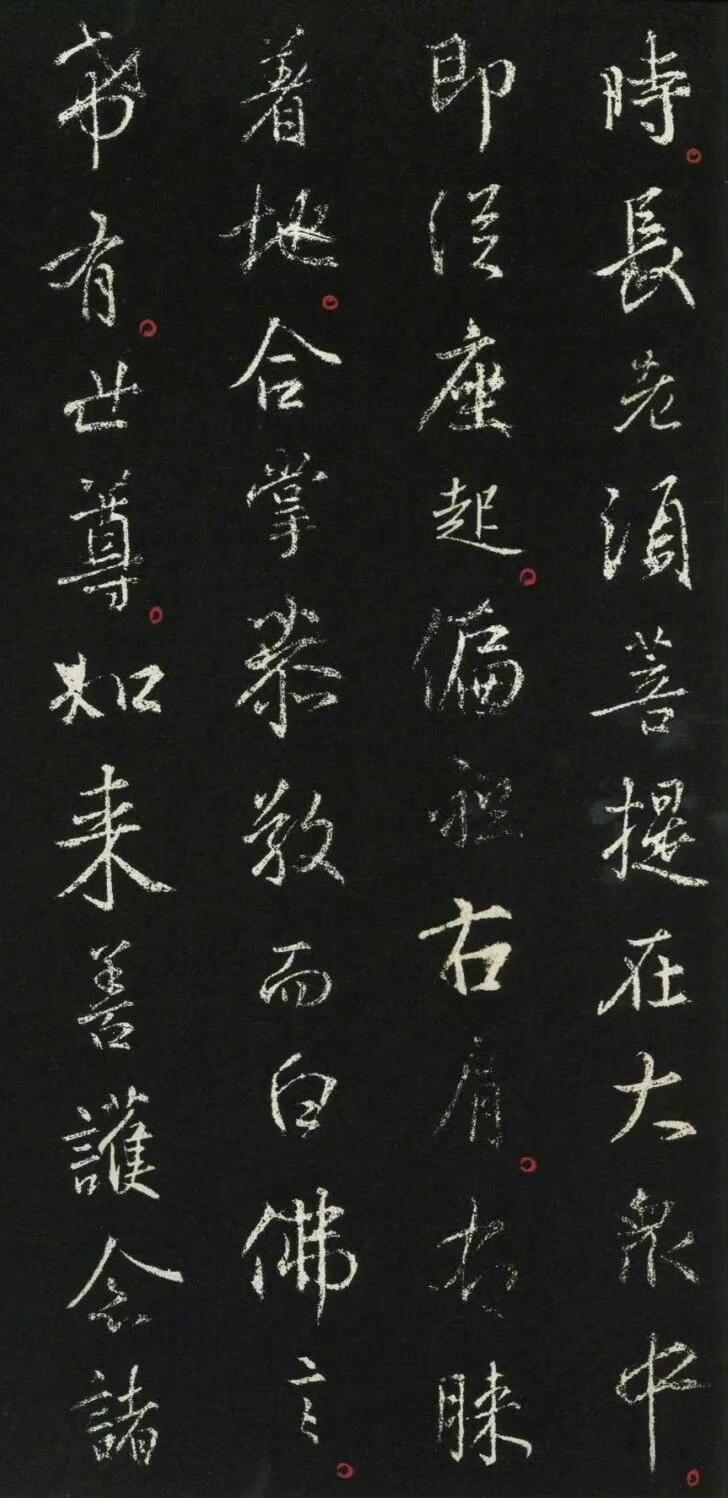 時。長老須菩提在大衆中。
即從座起。偏袒右肩。右膝
着地。合掌恭敬而白佛言。
希有。世尊。如来善護念諸